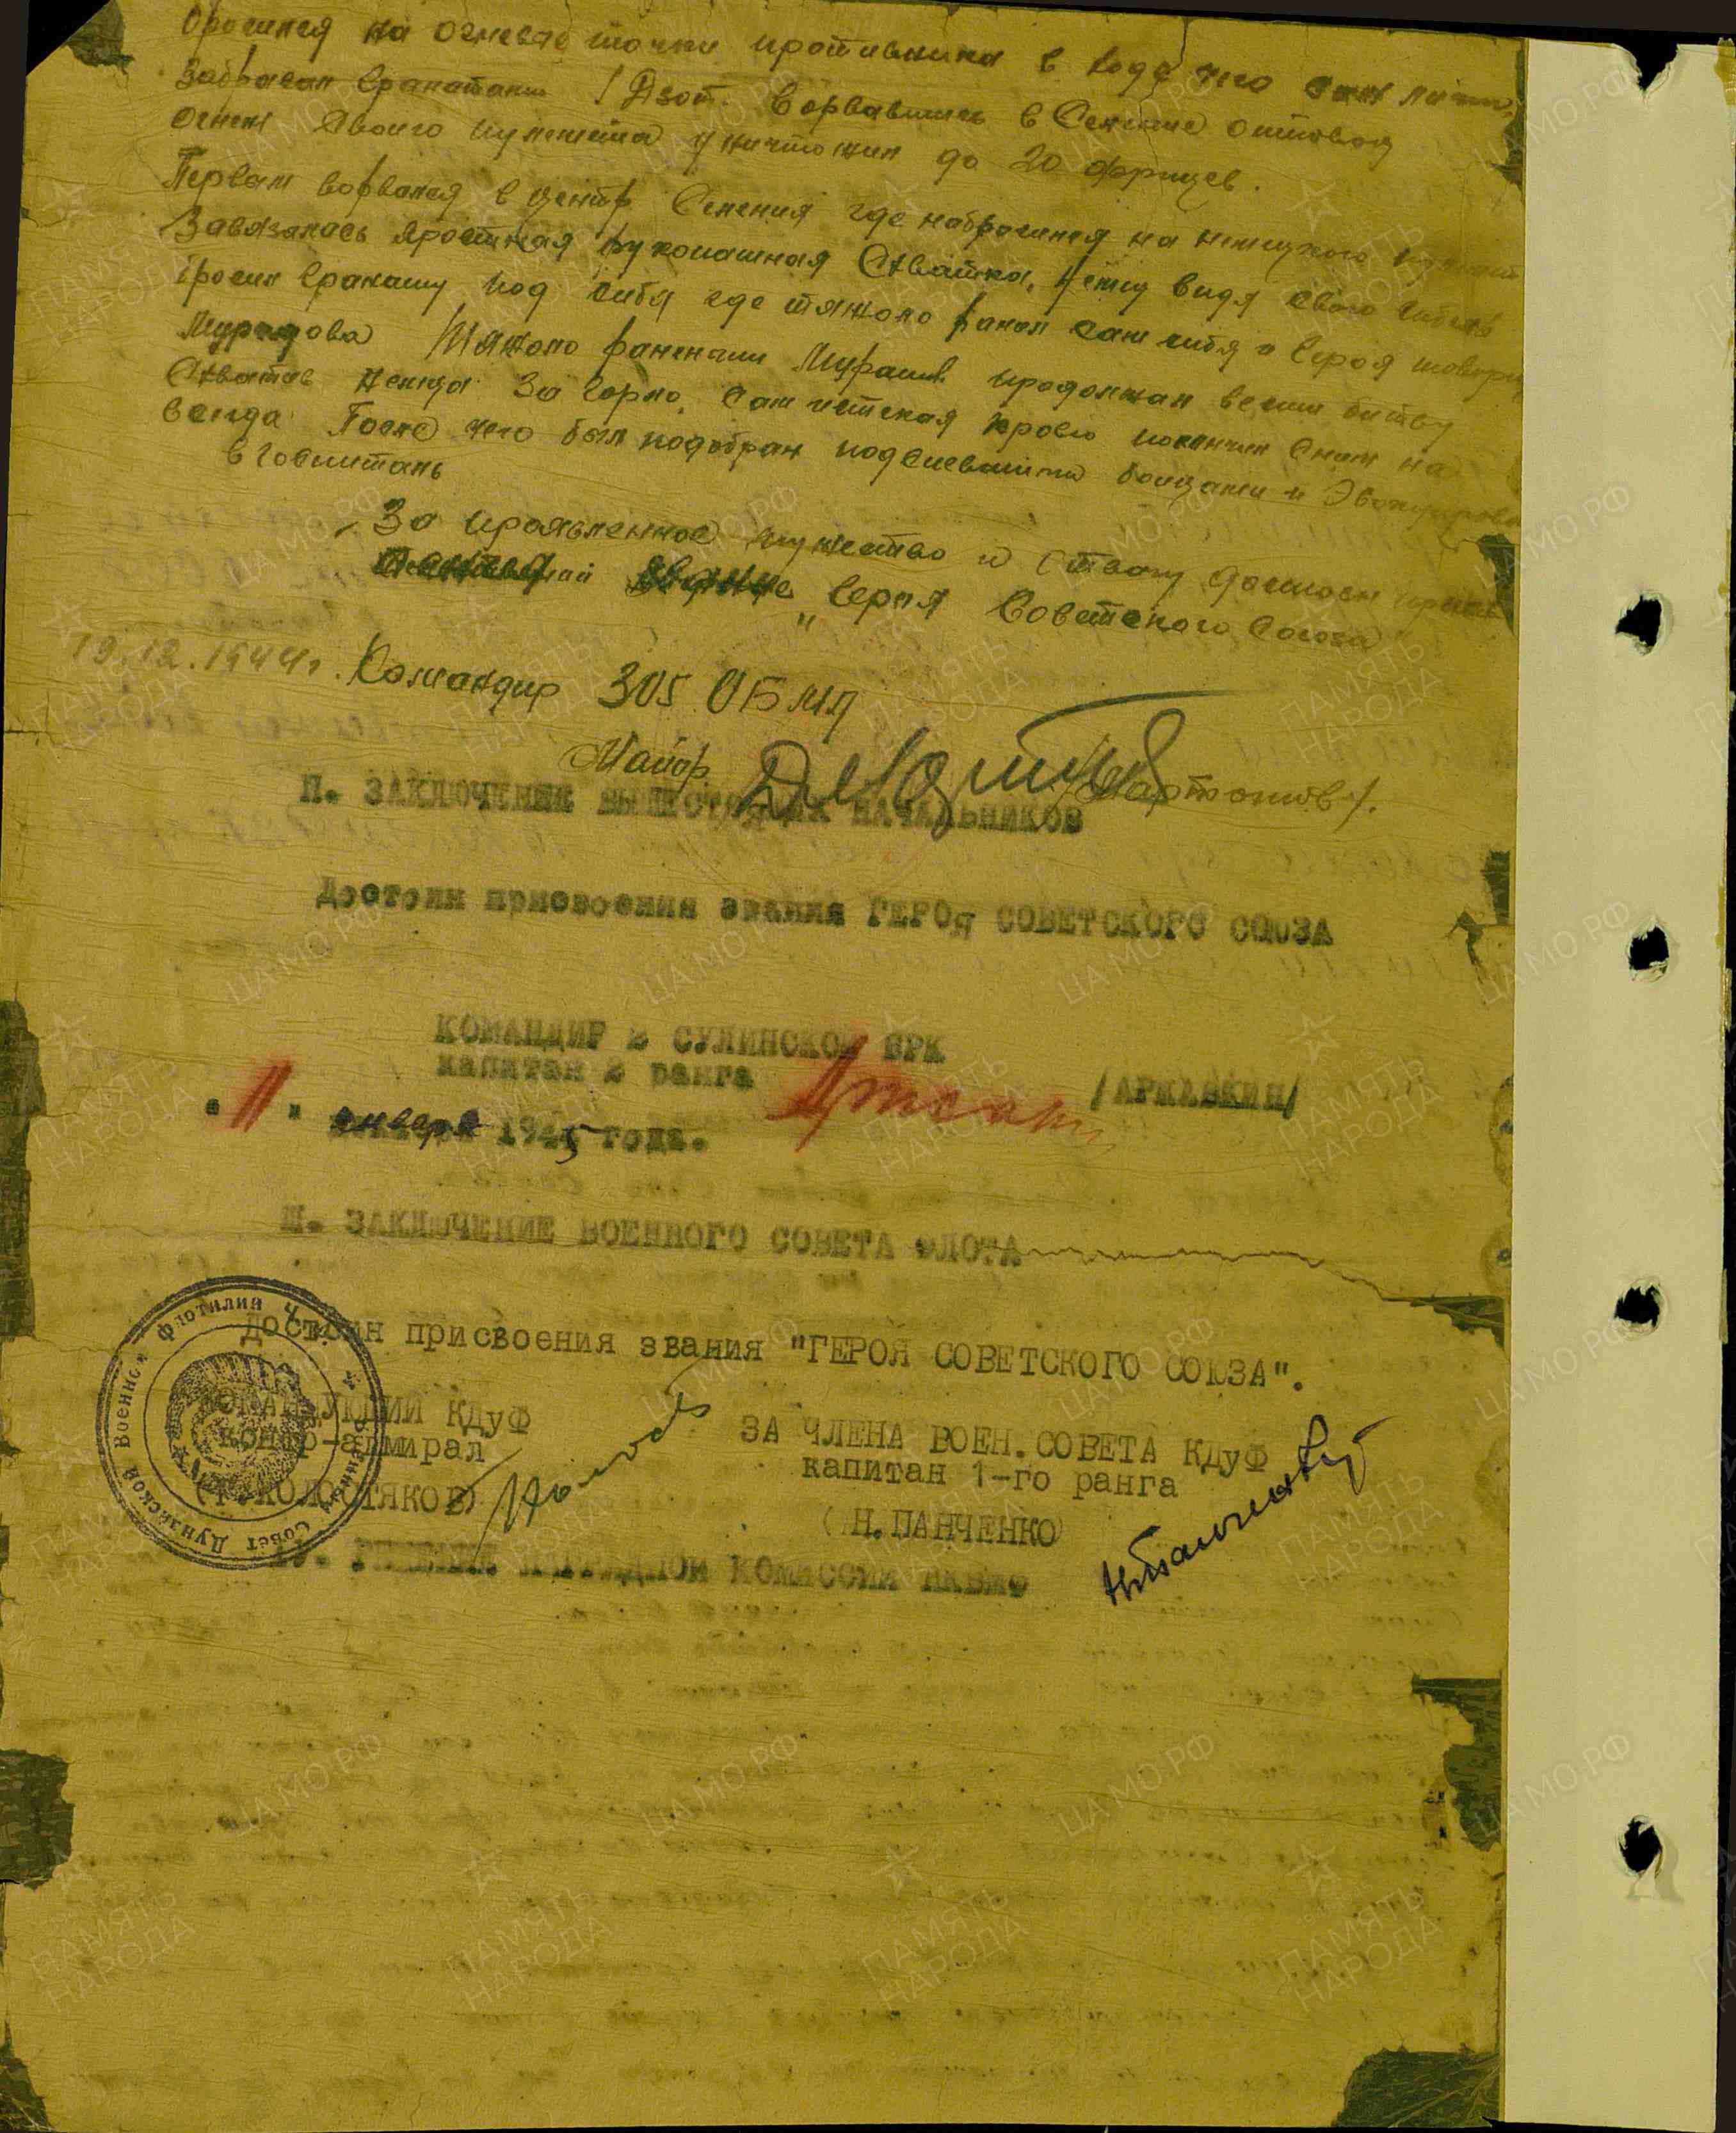 бросился на огневые точки противника в ходе чего сам лично
забросал гранатами 1 Дзот. Ворвавшись в селение Оптовац
огнем своего пулемета уничтожил до 20 фрицев.
Первым ворвался в центр селения где набросился на немецкого
Завязалась яростная рукопашная схватка, немец видя свою гибель
бросил гранату под себя где тяжело ранил сам себя и героя
Тяжело раненый продолжал вести битву
схватив немца за горло, сам истекая кровью покончил с ним на
всегда После чего был подобран подоспевшими бойцами и
в госпиталь
За проявленное мужество и отвагу достоин
звание "Героя Советского Союза"
19.12.1944г. Командир 305 ОБМП
Майор /Мартынов/.
П. ЗАКЛЮЧЕНИЕ ВЫШЕСТОЯЩИХ НАЧАЛЬНИКОВ
Достоин присвоения звания ГЕРОЯ СОВЕТСКОГО СОЮЗА
КОМАНДИР 2 СУЛИНСКОЙ БРК
капитан 2 ранга /АРЖАВКИН/
"11" января 1945 года.
Ш. ЗАКЛЮЧЕНИЕ ВОЕННОГО СОВЕТА ФЛОТА
Достоин присвоения звания "ГЕРОЯ СОВЕТСКОГО СОЮЗА".
КОМАНДУЮЩИЙ КДуФ
контр-адмирал
(Г. ХОЛОСТЯКОВ)
ЗА ЧЛЕНА ВОЕН. СОВЕТА КДуФ
капитан 1-го ранга
(Н. ПАНЧЕНКО)
НАГРАДНОЙ КОМИССИИ НКВМФ
Военный Совет Дунайской Военной Флотилии
ПАМЯТЬ НАРОДА
ЦАМО.РФ